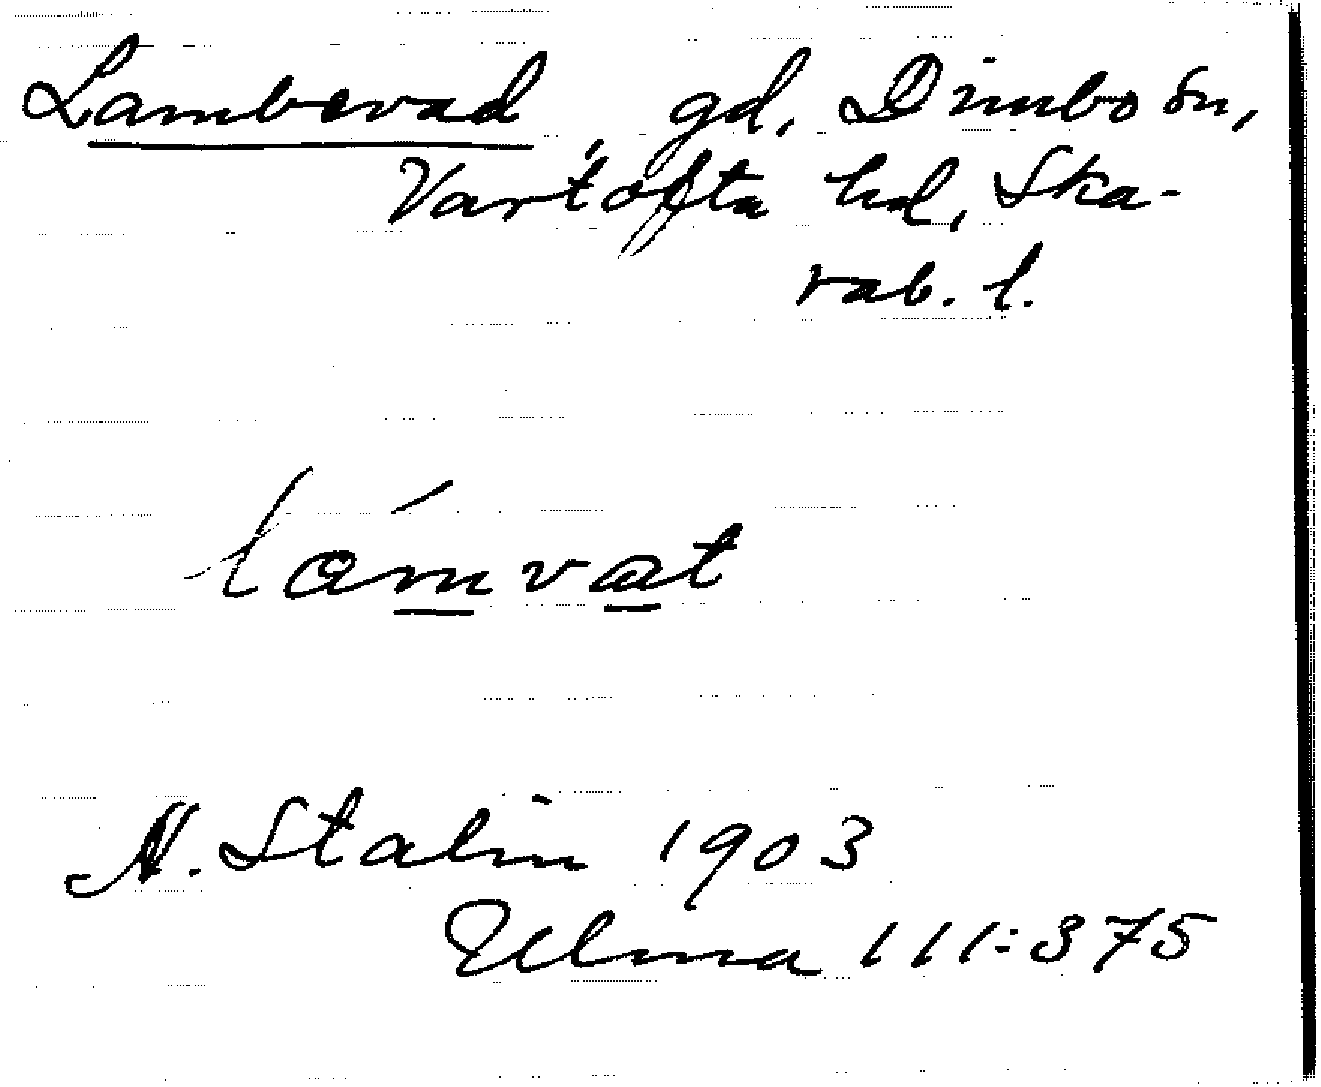 Lambevad, gd, Dimbo sn,
Vartofta hd, Ska-
rab. l.
lámvat
N. Stalin 1903
Ulma 111:375